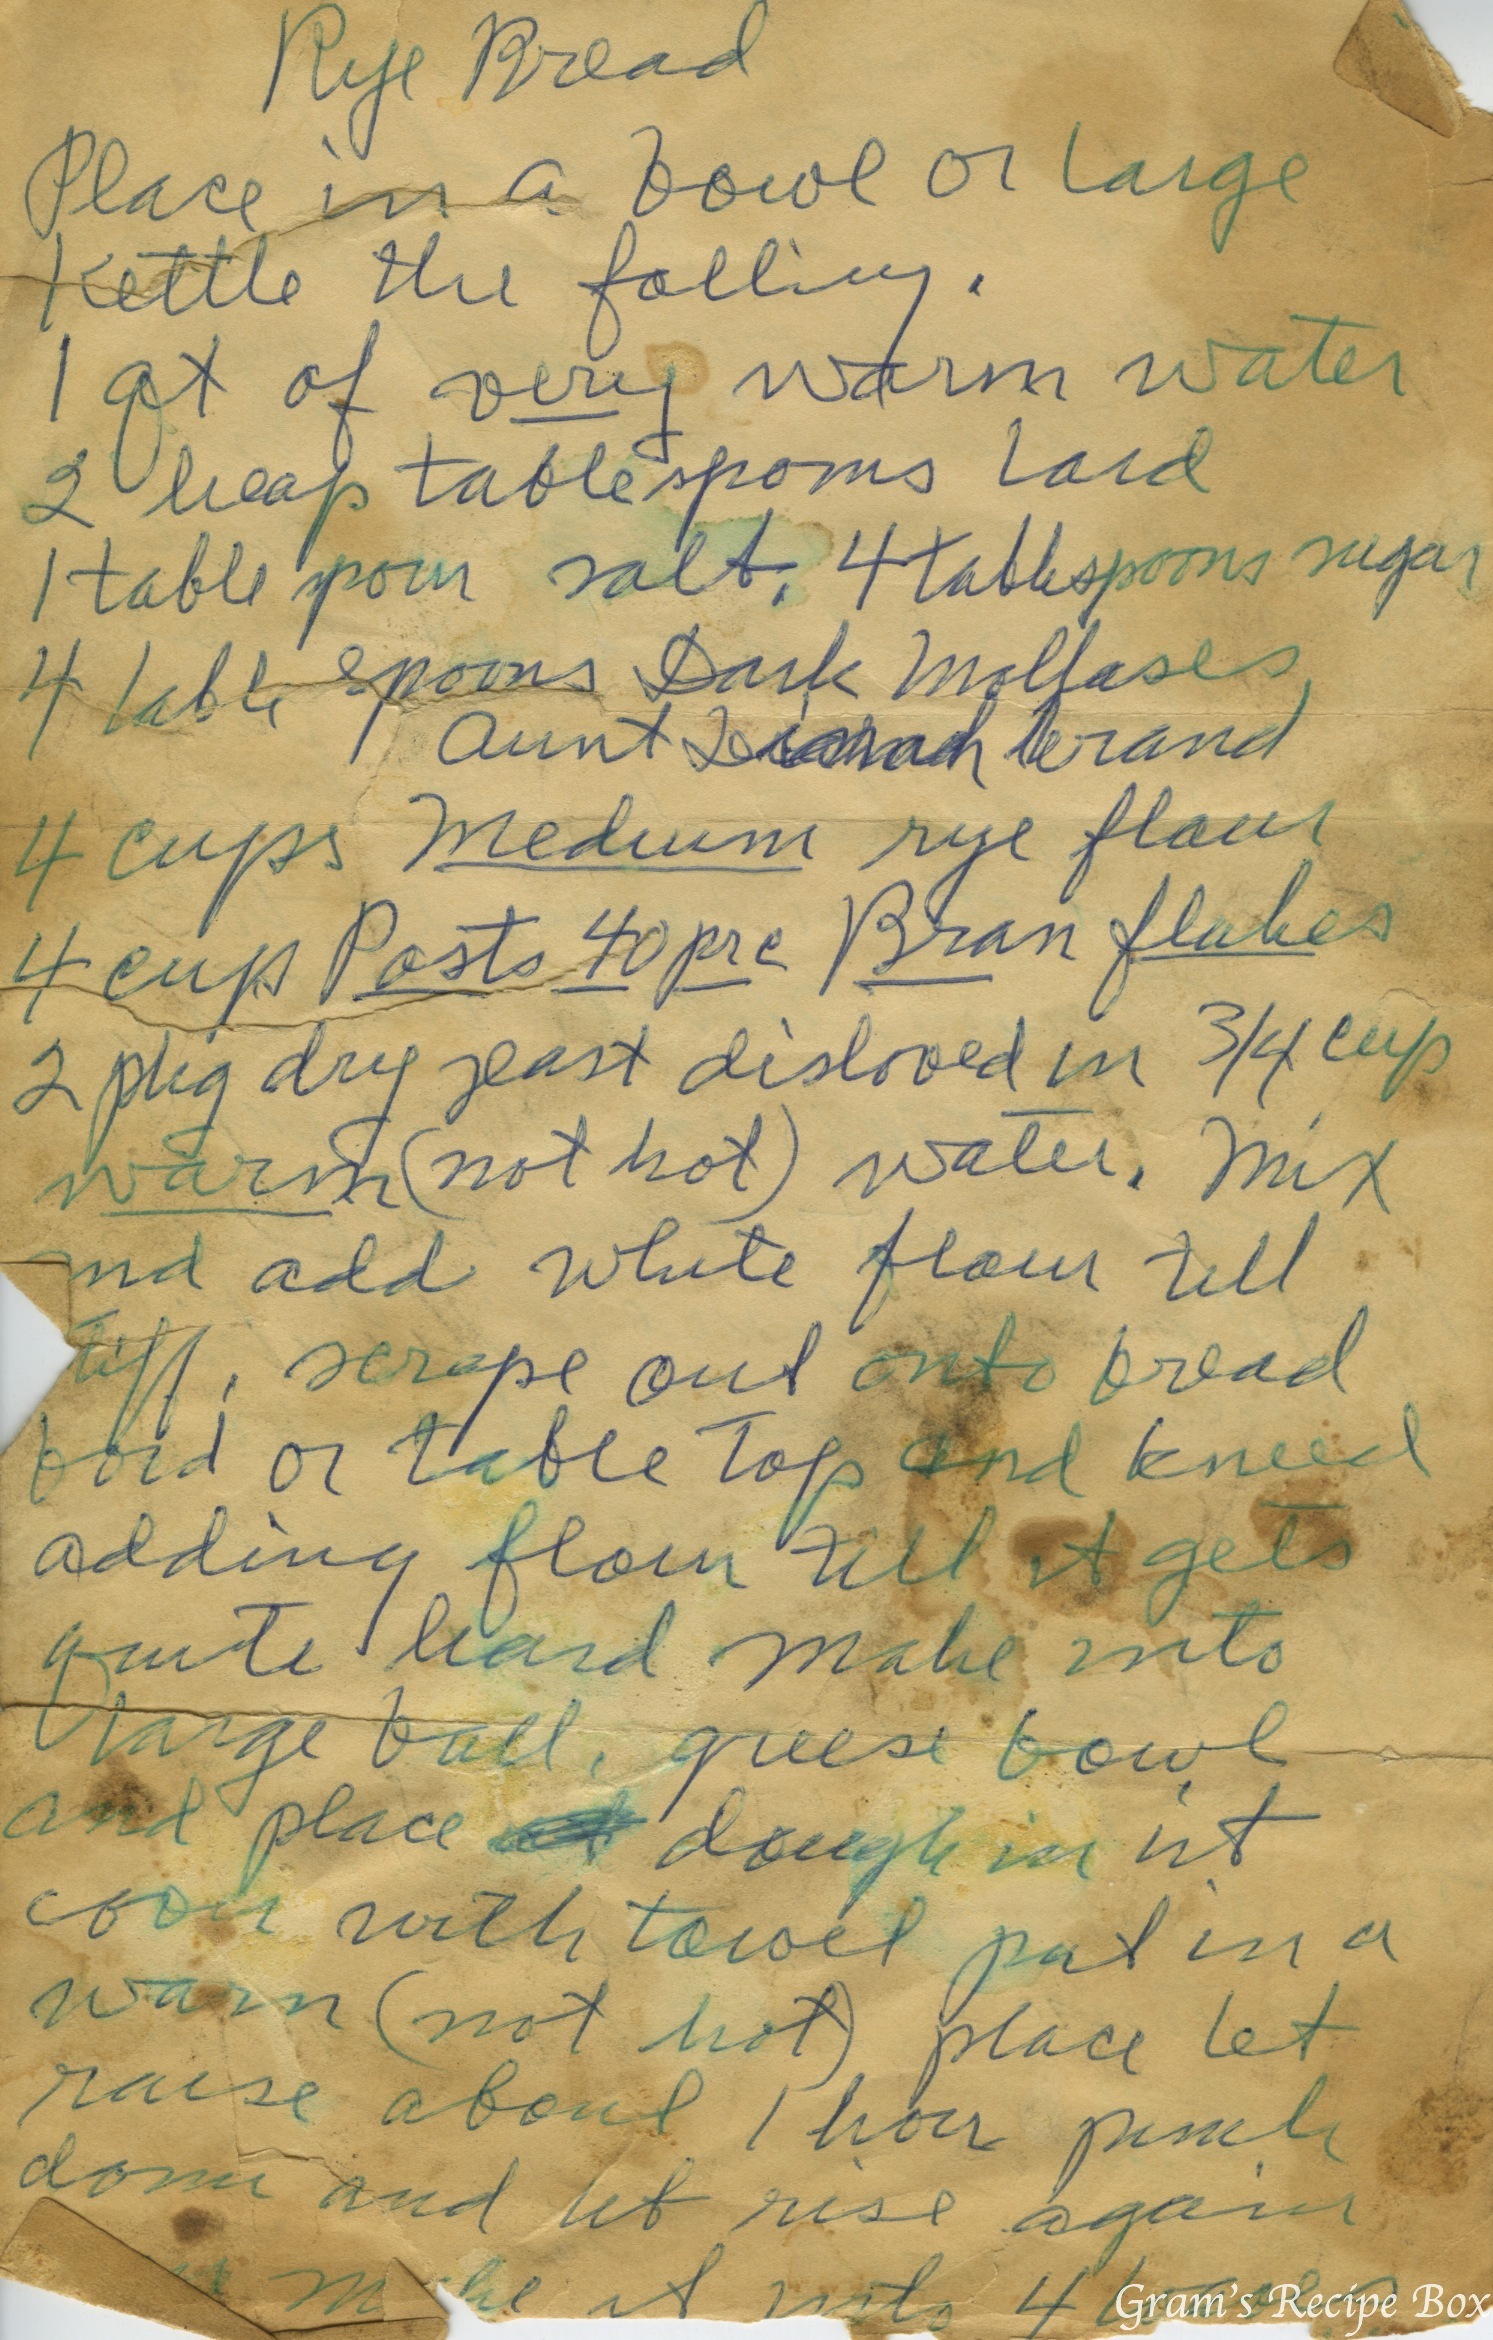 Rye Bread
Place in a bowl or large
Kettle the folling.
1 qt of very warm water
2 heap tablespoons lard
1 table spoon salt, 4 tablespoons sugar
4 table spoons Dark Mollases,
Aunt brand
4 cups Medium rye flour
4 cups Posts 40 prc Bran flakes
2 pkg dry yeast disloved in 3/4 cup
warm (not hot) water. Mix
nd add white flour till
tiff, scrape out onto bread
bord or table top and kneed
adding flour till it gets
quite hard make into
large ball, greese bowl
and place dough in it
cover with towel put in a
warm (not hot) place let
raise about 1 hour punch
down and let rise again
it into 4
Gram's Recipe Box